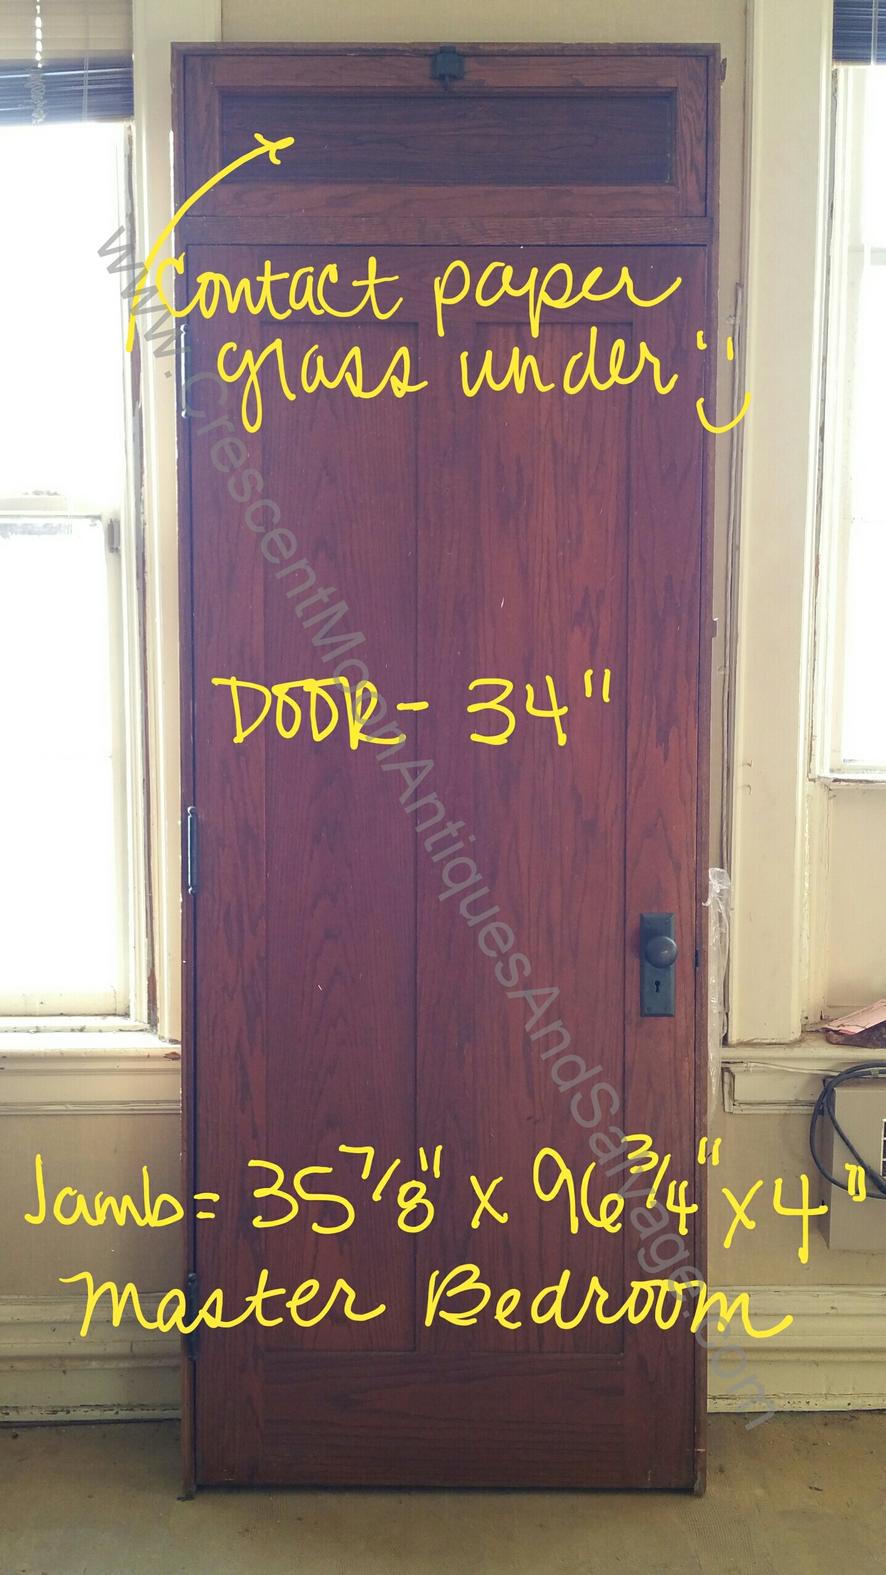 Contact paper
glass under :)
DOOR - 34"
Jamb = 35 7/8" x 96 3/4" x 4"
Master Bedroom
www.CrescentMoonAntiquesAndSalvage.com